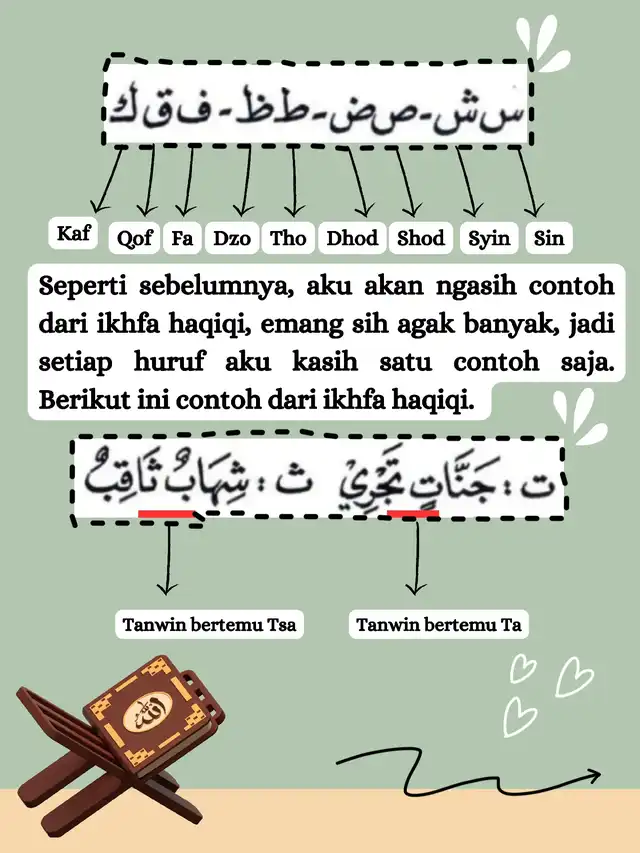 س ش - ص ض - ط ظ - ف ق ك
Kaf Qof Fa Dzo Tho Dhod Shod Syin Sin
Seperti sebelumnya, aku akan ngasih contoh
dari ikhfa haqiqi, emang sih agak banyak, jadi
setiap huruf aku kasih satu contoh saja.
Berikut ini contoh dari ikhfa haqiqi.
ت : جَنَّاتٍ تَجْرِيْ ث : شِهَابٌ ثَاقِبٌ
Tanwin bertemu Tsa Tanwin bertemu Ta
الله